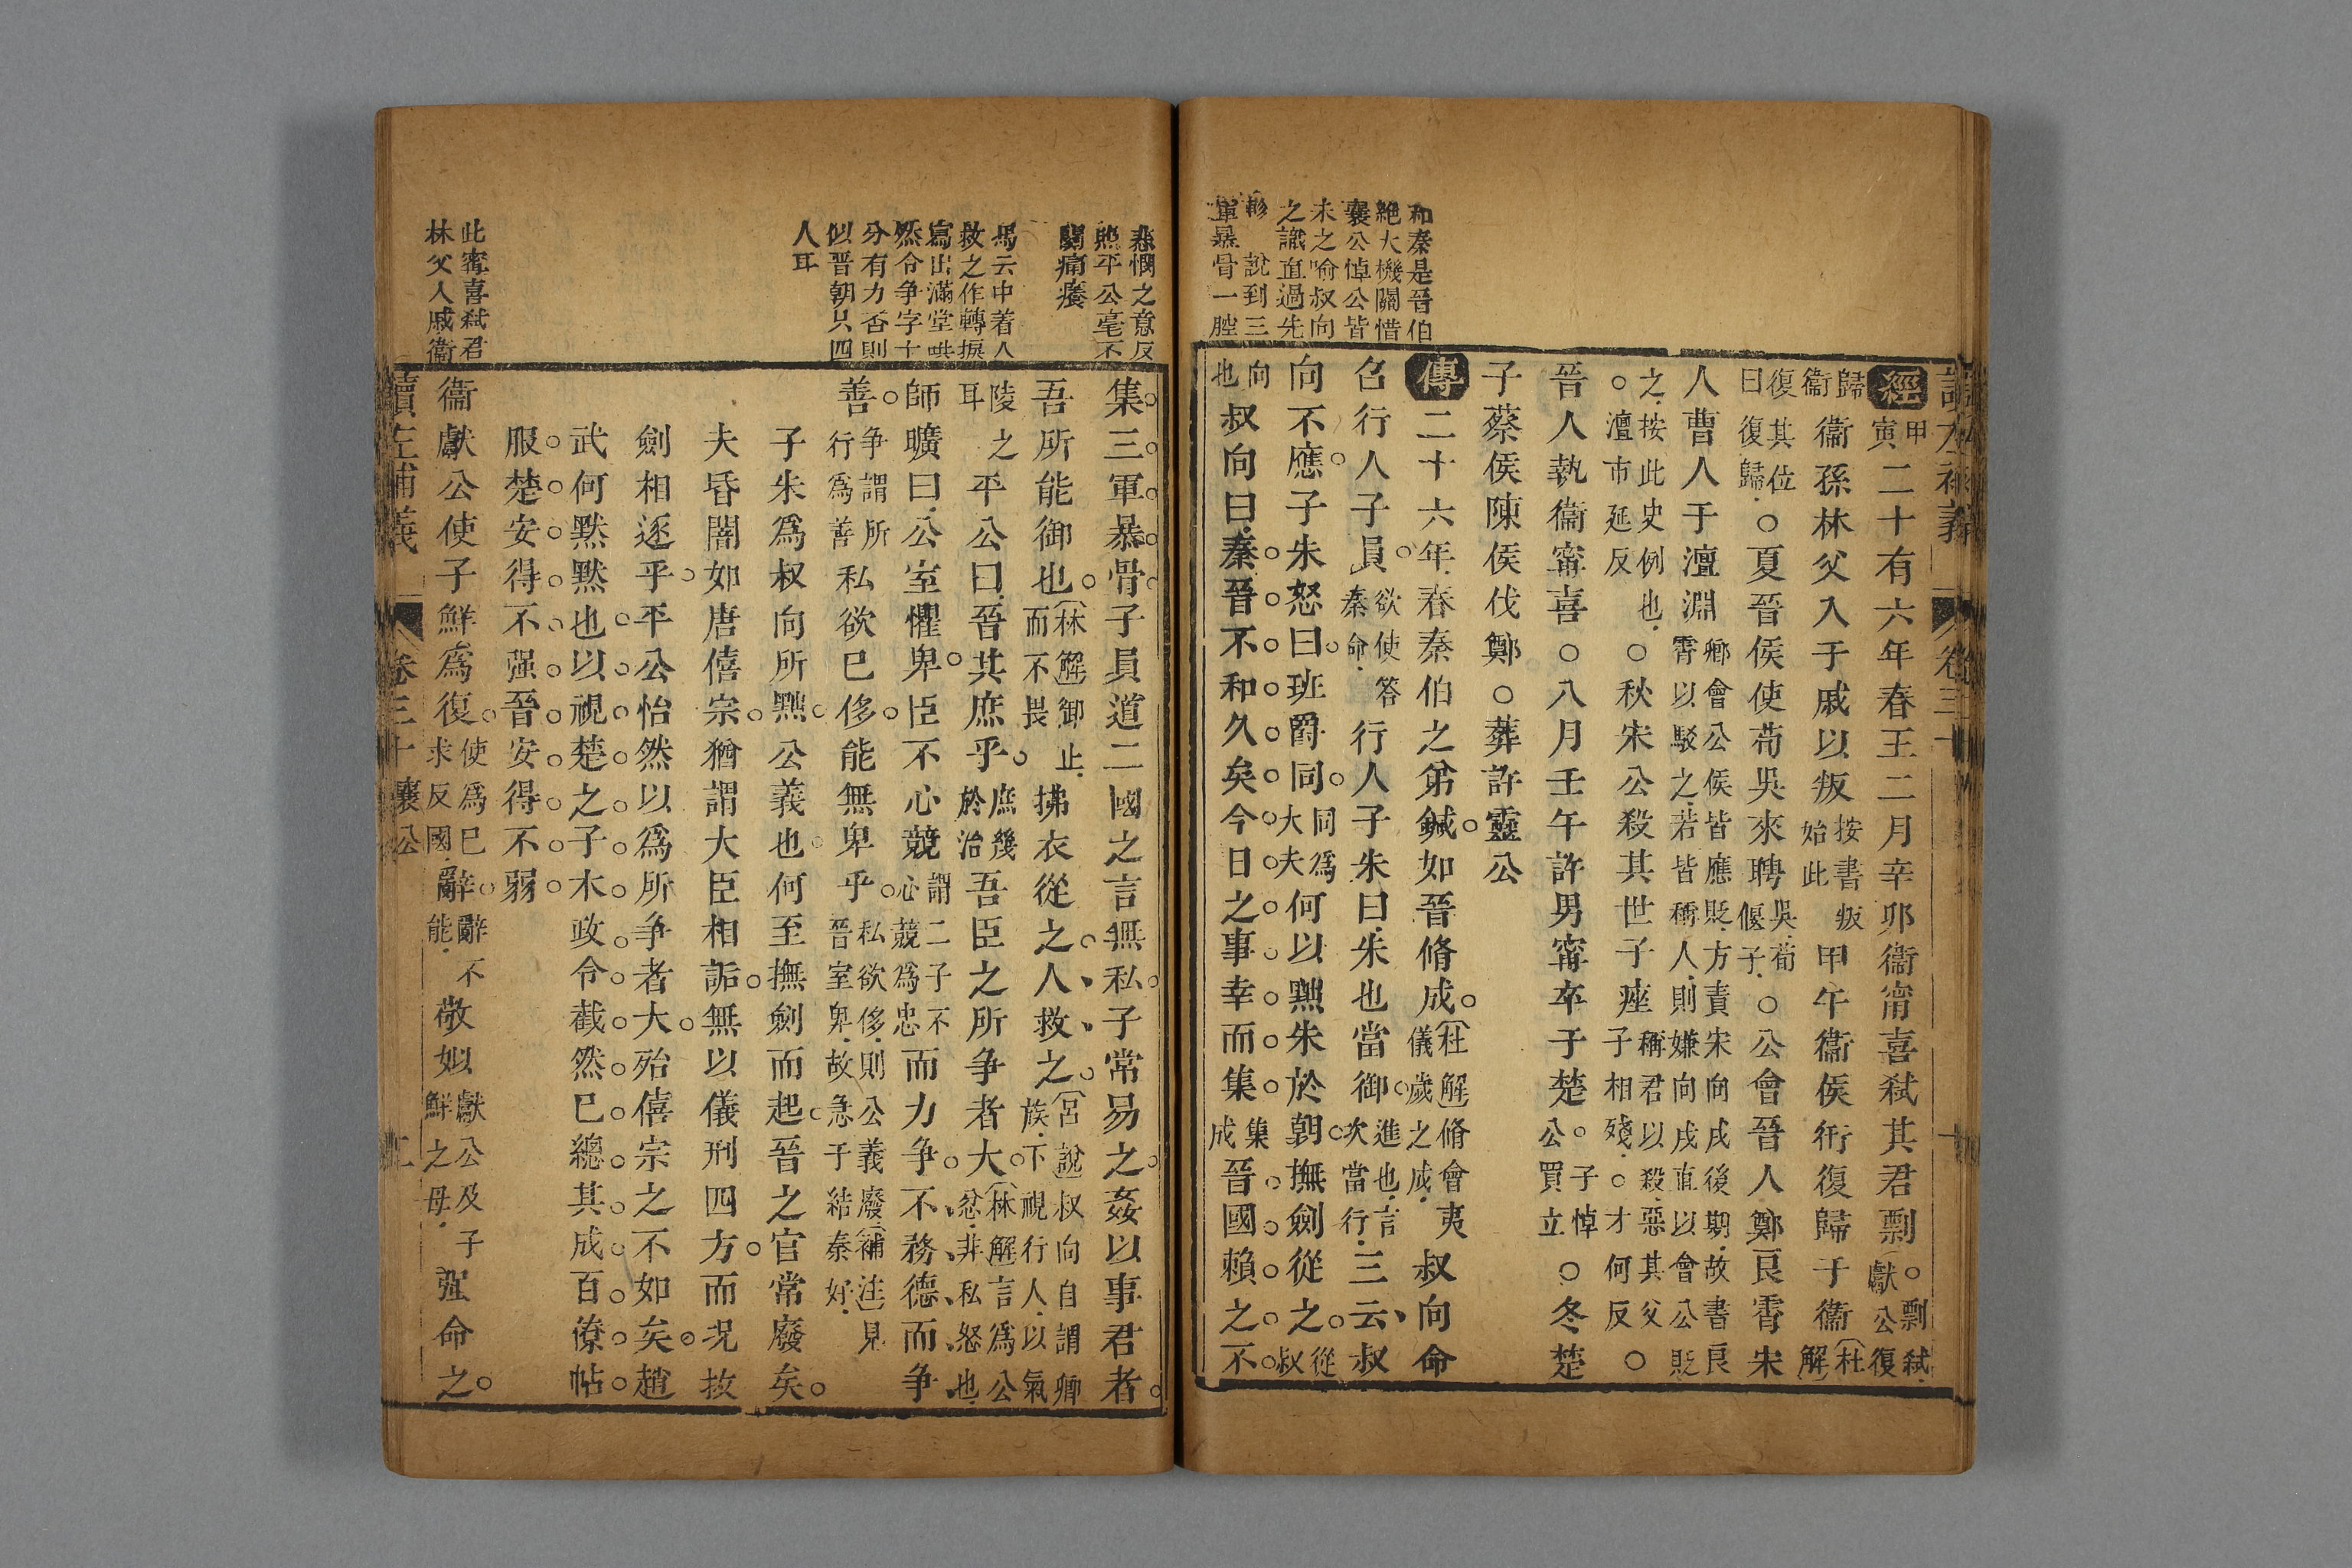 和秦是晉伯
絶大機關惜
襄公悼公皆
未之喻叔向
之識直過先
軫 說到三
軍暴骨一腔
讀左補義 卷三十
經甲寅二十有六年春王二月辛卯衞甯喜弒其君剽剽弒獻公復
歸衞衞孫林父入于戚以叛按書叛始此甲午衞侯衎復歸于衞杜解
復其位曰復歸○夏晉侯使荀吳來聘吳荀偃子○公會晉人鄭良霄宋
人曹人于澶淵鄉會公侯皆應貶方責宋向戌後期故書良霄以駁之若皆稱人則嫌向戌直以會公貶
之按此史例也○澶市延反○秋宋公殺其世子痤稱君以殺惡其父子相殘○才何反○
晉人執衞甯喜○八月壬午許男甯卒于楚子悼公買立○冬楚
子蔡侯陳侯伐鄭○葬許靈公
傳二十六年春秦伯之弟鍼如晉脩成杜解脩會夷儀歲之成叔向命
召行人子員欲使答秦命行人子朱曰朱也當御進也言次當行三云叔
向不應子朱怒曰班爵同同爲大夫何以黜朱於朝撫劍從之從叔
向也叔向曰秦晉不和久矣今日之事幸而集集成晉國賴之不
悲憫之意反
照平公毫不
關痛癢
馬云中着人
救之作轉捩
寫出滿堂哄
然令争字十
分有力否則
似晉朝只四
人耳
此甯喜弒君
林父入戚衞
集三軍暴骨子員道二國之言無私子常易之姦以事君者
吾所能御也林解御止而不畏拂衣從之人救之宮說叔向自謂卿族下視行人以氣
陵之耳平公曰晉其庶乎庶幾於治吾臣之所争者大林解言爲公忿非私怒也
師曠曰公室懼卑臣不心競謂二子不心競爲忠而力争不務德而争
善争謂所行爲善私欲已侈能無卑乎私欲侈則公義廢補注見晉室卑故急于結秦好
子朱爲叔向所黜公義也何至撫劍而起晉之官常廢矣
夫昏闇如唐僖宗猶謂大臣相詬無以儀刑四方而况故
劍相逐乎平公怡然以爲所争者大殆僖宗之不如矣趙
武何黙黙也以視楚之子木政令截然已總其成百僚帖
服楚安得不强晉安得不弱
衞獻公使子鮮爲復使爲已求反國辭辭不能敬姒獻公及子鮮之母强命之
讀左補義 卷三十 襄公 二